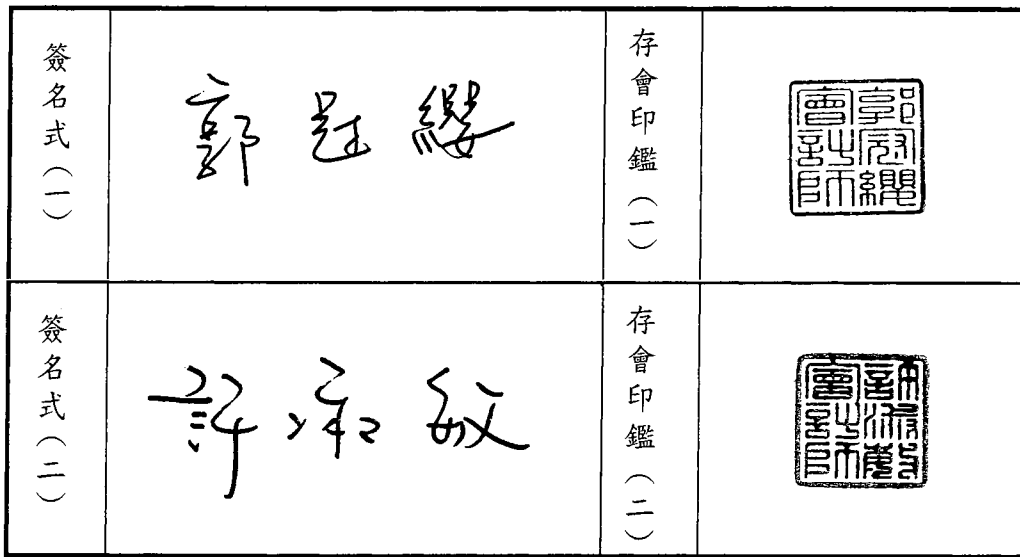 簽名式(一)
郭冠纓
存會印鑑(一)
郭冠纓會計師
簽名式(二)
許淑敏
存會印鑑(二)
許淑敏會計師